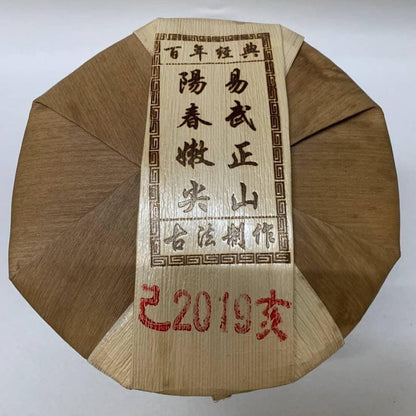 百年经典
易武正山
陽春嫩尖
古法制作
己2019亥